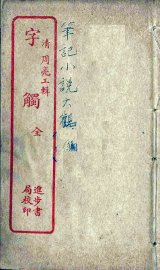 筆記小說大觀
清周亮工輯
字觸 全
進步書
局校印